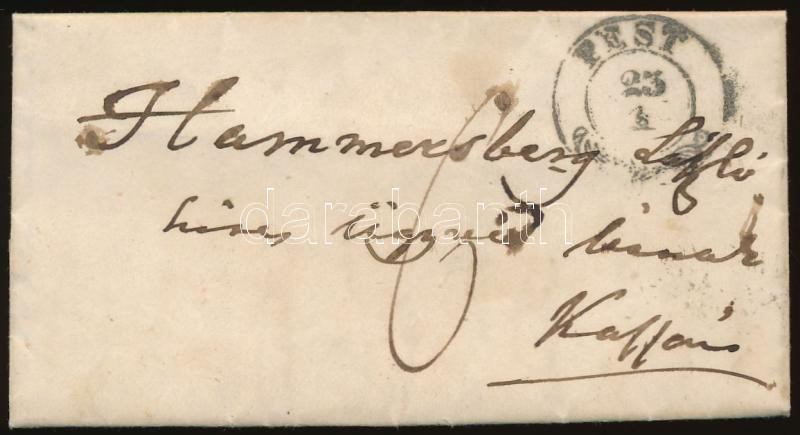 PEST
23
1
Hammersberg László
hites ügyvéd úrnak
6
Kassán
darabanth